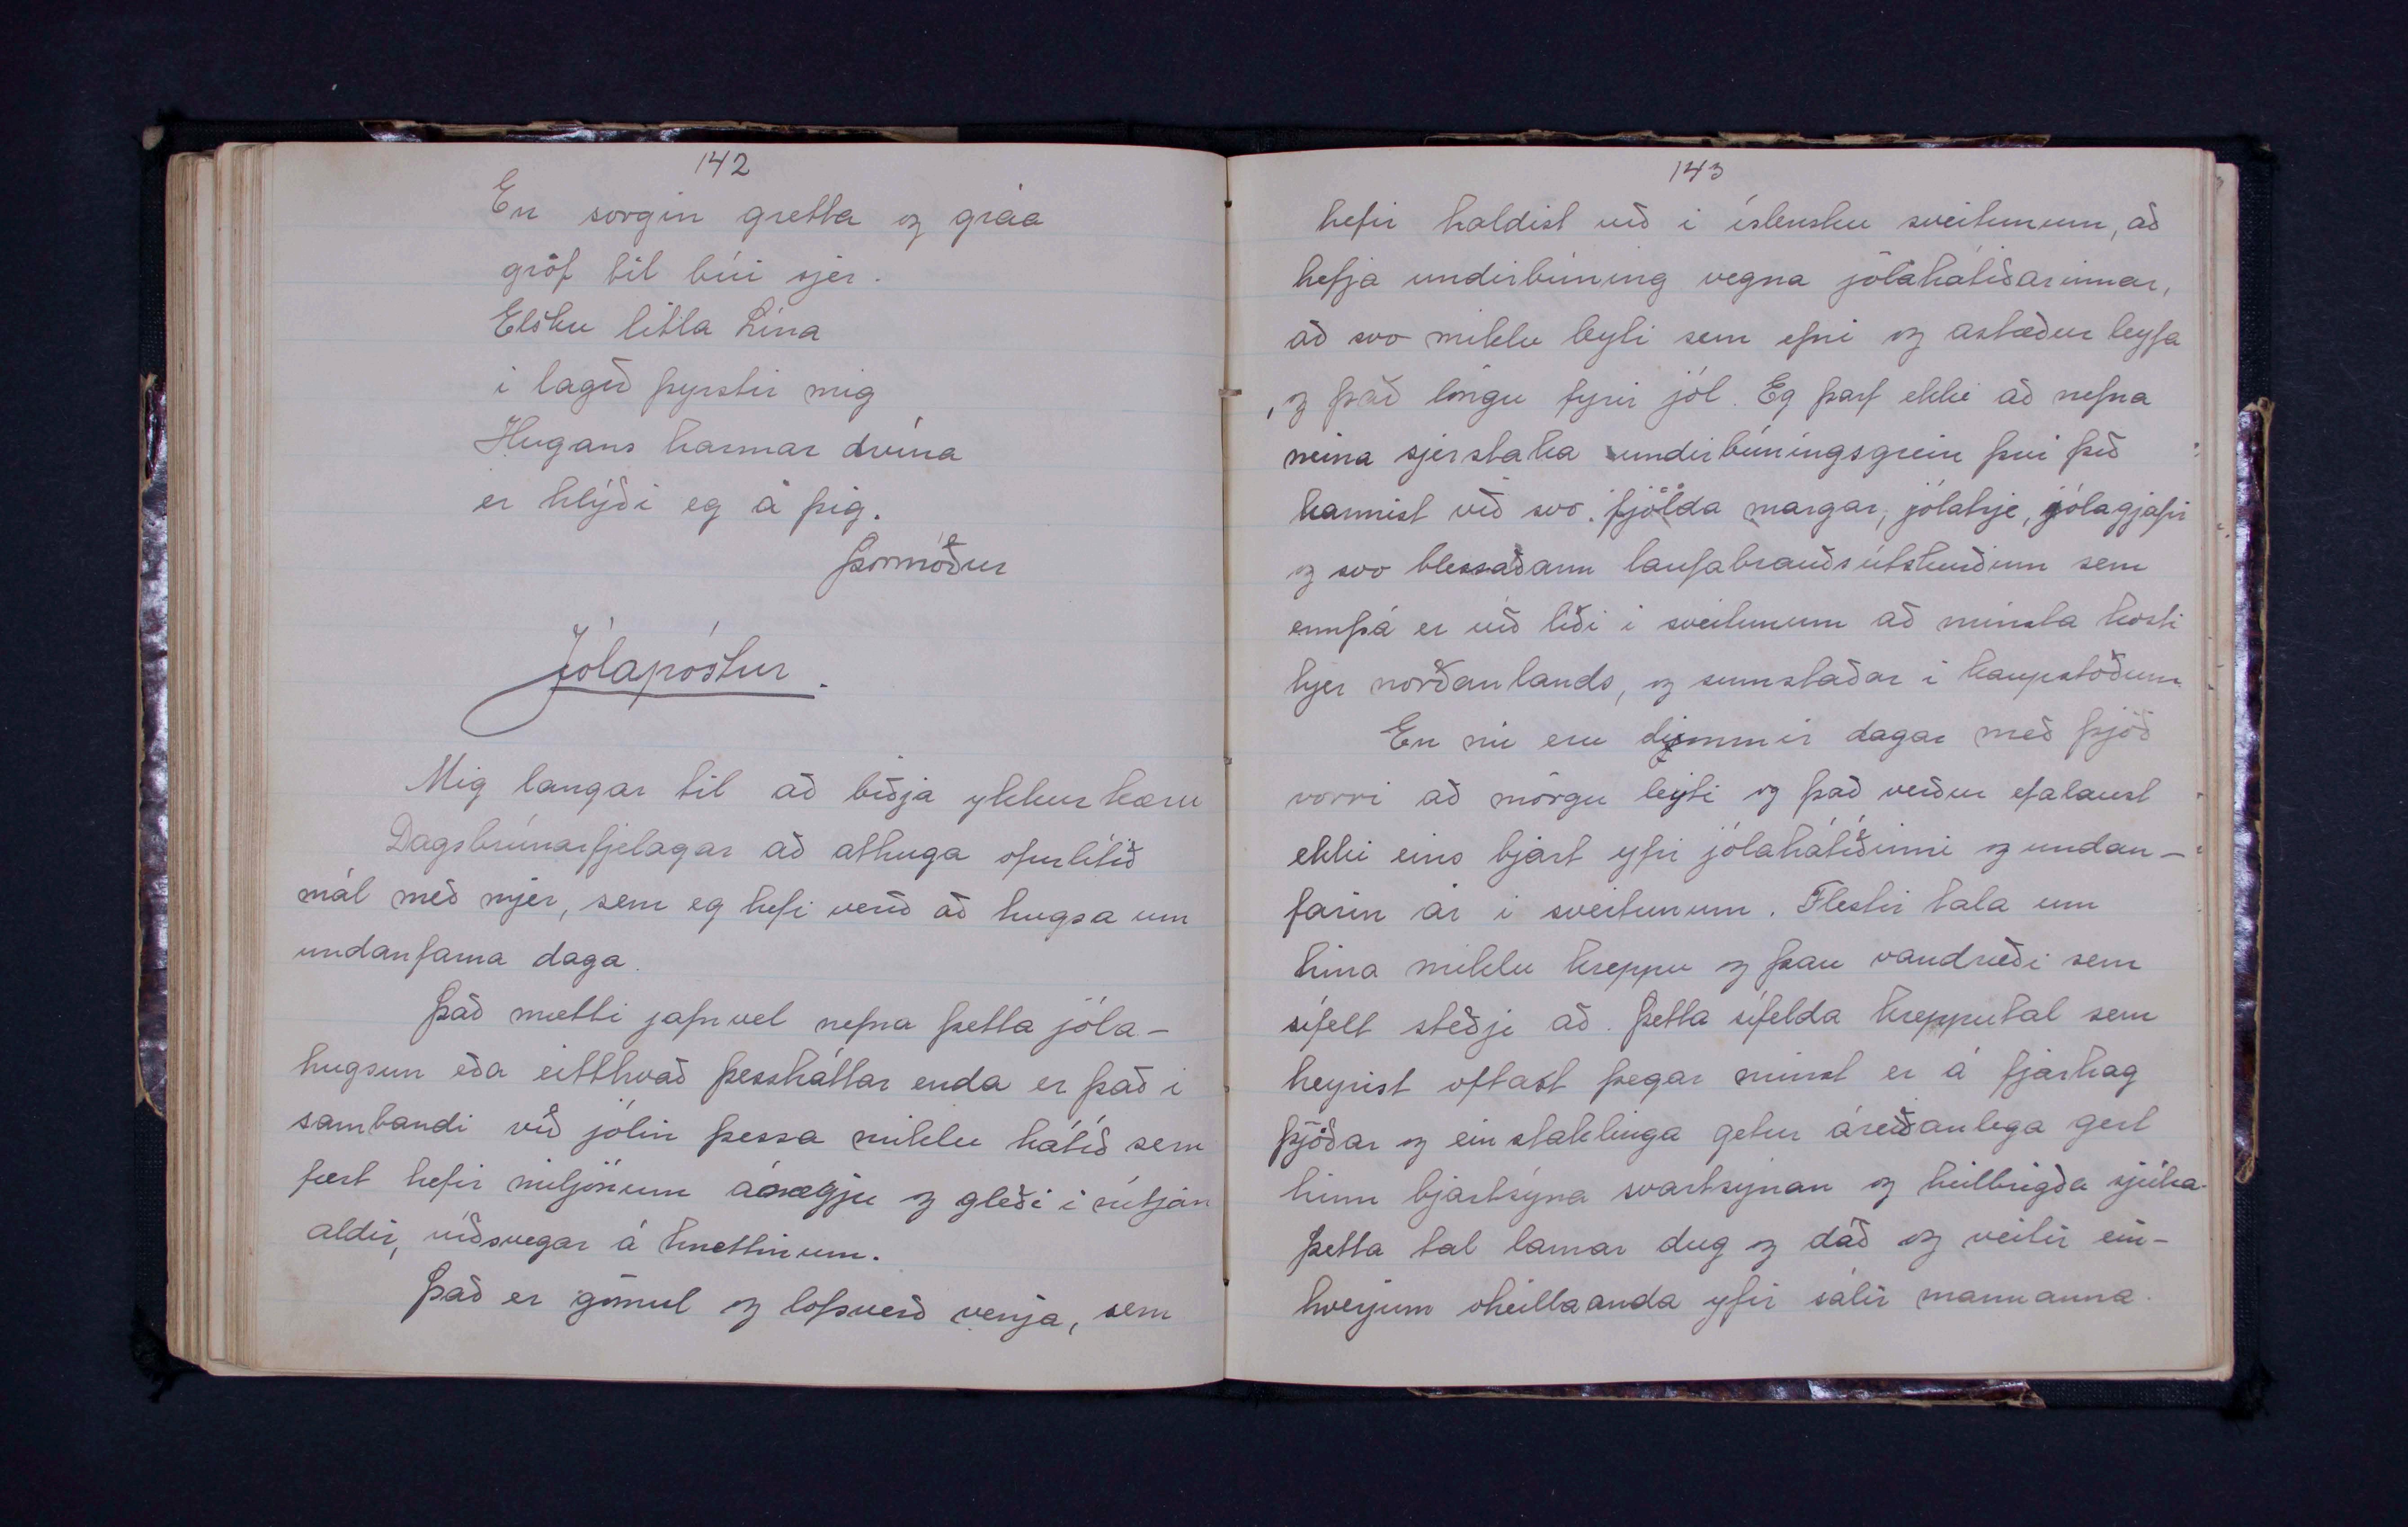 142
En sorgin gretta og gráa
gröf til búi sjer.
Elsku litla Lína
i lagið þyrstir mig
Hugans harmar dvína
er hlýði eg á þig.
Þormóður
Jólapóstur.
Mig langar til að biðja ykkur kæru
Dagsbrúnarfjelagar að athuga ofurlítið
mál með mjer, sem eg hefi verið að hugsa um
undanfarna daga.
Það mætti jafnvel nefna þetta jóla-
hugsun eða eitthvað þessháttar enda er það i
sambandi við jólin þessa miklu hátíð sem
fært hefir miljónum ánægju og gleði i nítján
aldir, víðsvegar á hnettinum.
Það er gömul og lofsverð venja, sem
143
hefir haldist við i íslensku sveitunum, að
hefja undirbúning vegna jólahátíðarinnar,
að svo miklu leyti sem efni og astæður leyfa
, og það löngu fyrir jól. Eg þarf ekki að nefna
neina sjerstaka undirbúningsgrein þvi þið
kannist við svo fjölda margar, jólatrje, jólagjafir
og svo blessaðann laufabrauðsútskurðinn sem
ennþá er við líði i sveitunum að minsta kosti
hjer norðanlands, og sumstaðar i kaupstöðum
En nú eru dimmir dagar með þjóð
vorri að mörgu leyti og það verður efalaust
ekki eins bjart yfir jólahátíðinni og undan-
farin ár i sveitunum. Flestir tala um
hina miklu kreppu og þau vandræði sem
sífelt steðji að. Þetta sífelda krepputal sem
heyrist oftast þegar minst er á fjárhag
þjóðar og einstaklinga getur áreiðanlega gert
hinn bjartsýna svartsýnan og heilbrigða sjúka.
Þetta tal lamar dug og dáð og veitir ein-
hverjum óheillaanda yfir sálir mannanna.